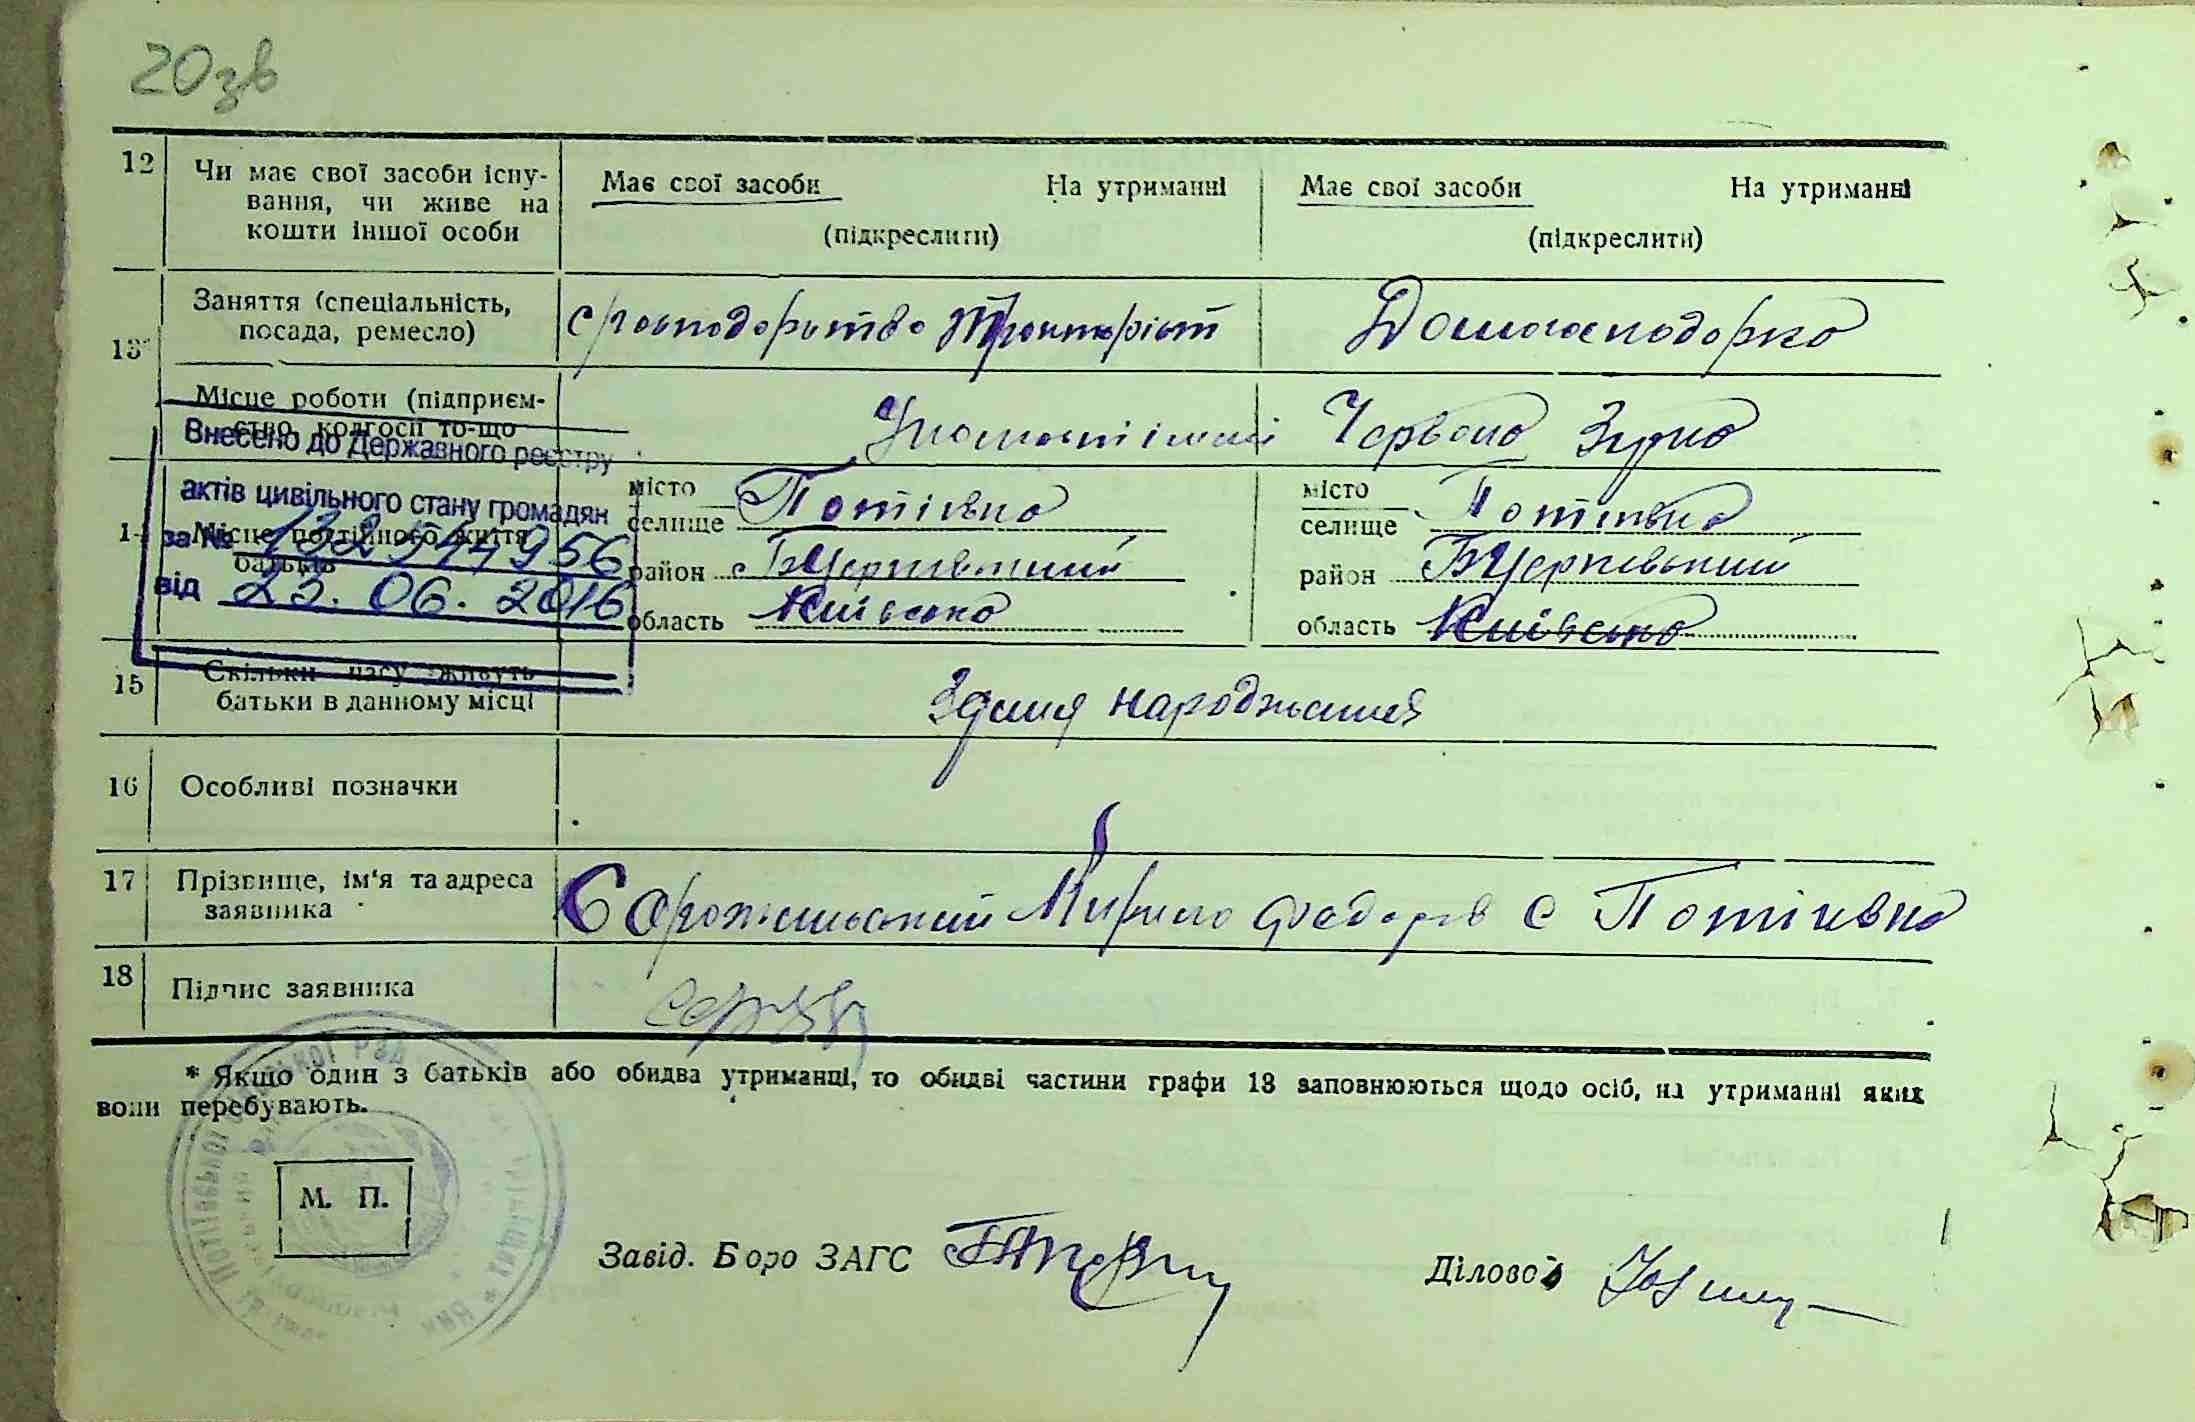 20зв
12 Чи має свої засоби існу-
вання, чи живе на
кошти іншої особи
Має свої засоби На утриманні
(підкреслити)
Має свої засоби На утриманні
(підкреслити)
13* Заняття (спеціальність,
посада, ремесло)
Тракторіст
Домогосподорка
Місце роботи (підприєм-
ство, колгосп то-що
Червоно Зірка
Внесено до Державного реєстру
актів цивільного стану громадян
за №
від 23. 06. 2016
14 Місце постійного життя
батьків
місто
селище Потіївка
район БЦерківський
область Київсько
місто
селище Потіївка
район БЦерківський
область Київсько
15 Скільки часу живуть
батьки в данному місці
Здння народження
16 Особливі позначки
17 Прізвище, ім'я та адреса
заявника
Кирило Федорів с Потіївка
18 Підпис заявника
* Якщо один з батьків або обидва утриманці, то обидві частини графи 13 заповнюються щодо осіб, на утриманні яких
вони перебувають.
М. П.
Завід. Бюро ЗАГС
Діловод